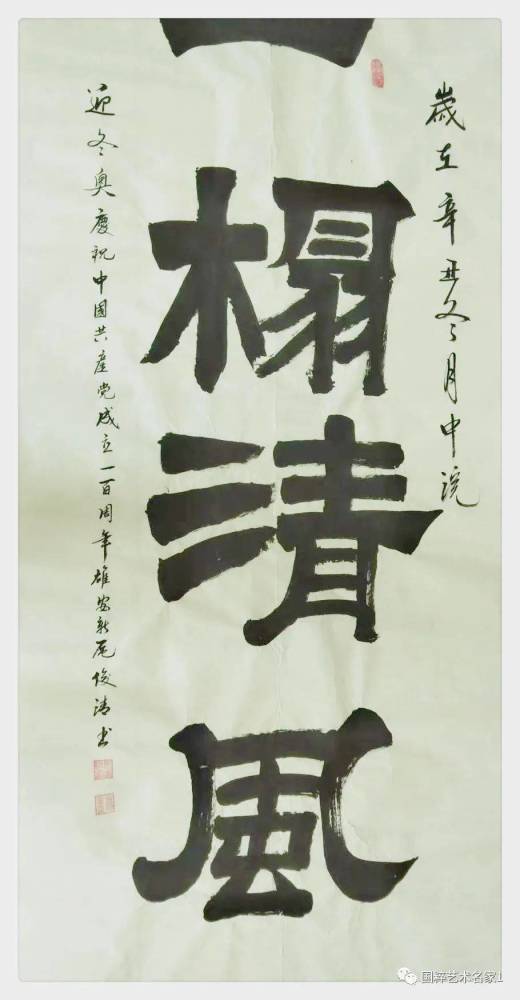 歲在辛丑冬月中浣
一榻清風
迎冬奥慶祝中國共產党成立一百周年雄安新俊清书
国粹艺术名家1